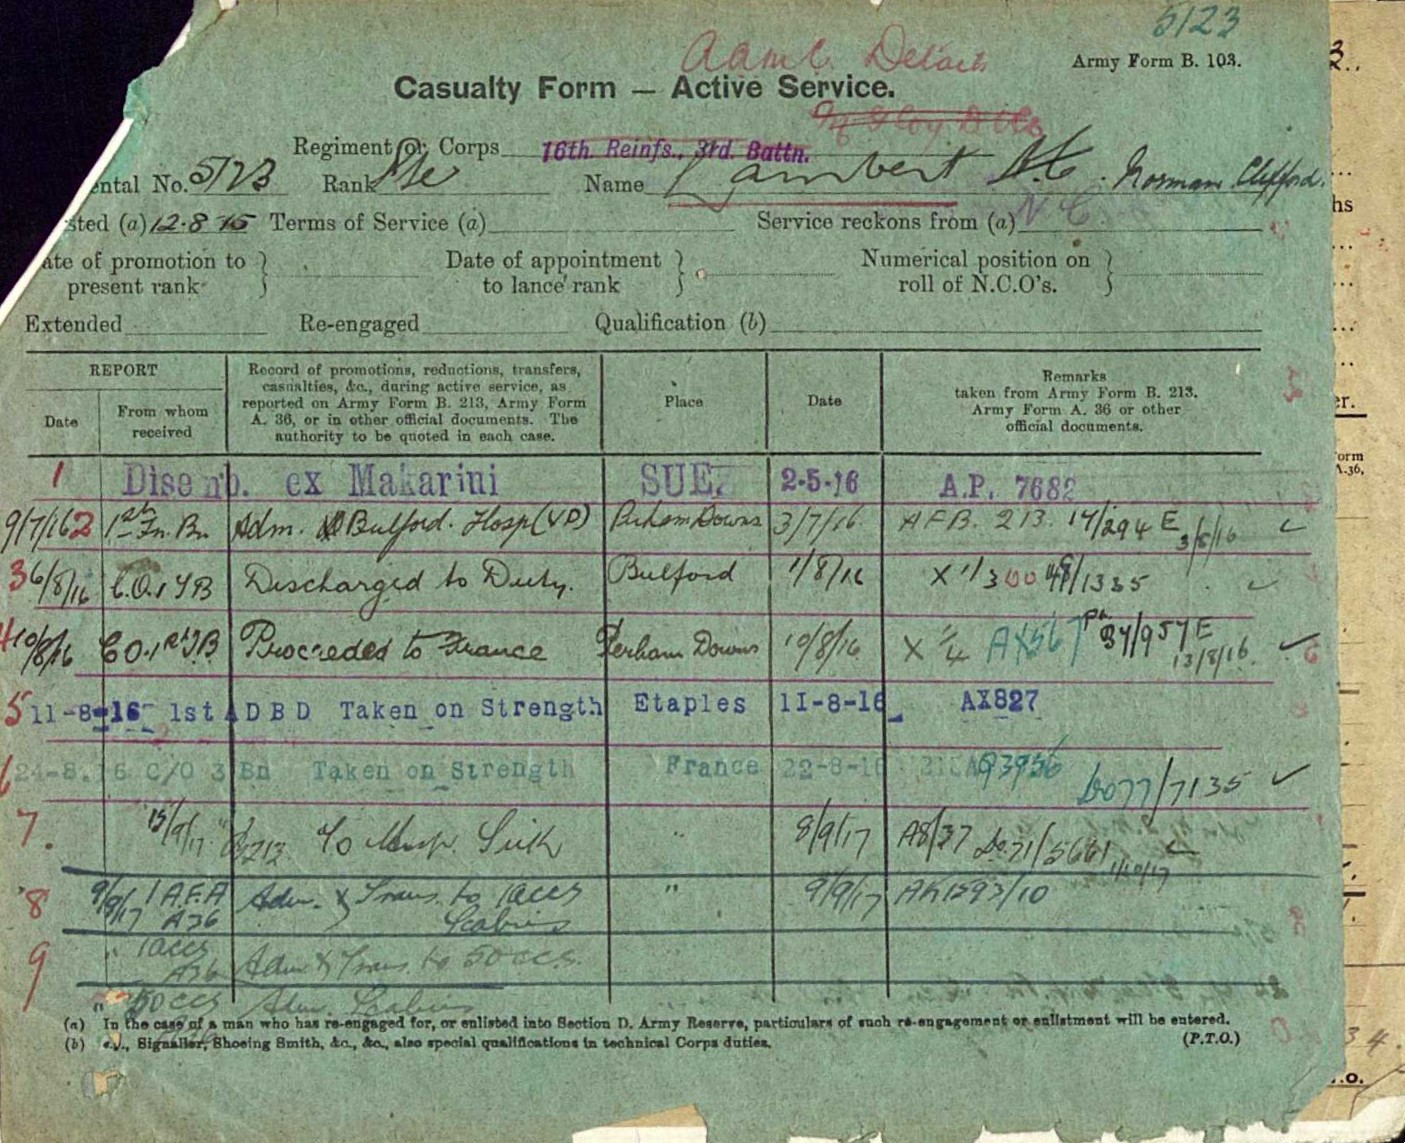 5123
Army Form B. 103.
AAMC. Details
Casualty Form — Active Service.
Regiment or Corps 16th. Reinfs., 3rd. Battn.
ental No. 5123 Rank Pte Name Lambert N.C. Norman Clifford.
sted (a) 12.8.15 Terms of Service (a) Service reckons from (a) N.C.
ate of promotion to present rank
Date of appointment to lance rank
Numerical position on roll of N.C.O's.
Extended Re-engaged Qualification (b)
REPORT
Date
From whom received
Record of promotions, reductions, transfers, casualties, &c., during active service, as reported on Army Form B. 213, Army Form A. 36, or in other official documents. The authority to be quoted in each case.
Place
Date
Remarks
taken from Army Form B. 213. Army Form A. 36 or other official documents.
1 Disemb. ex Makarini SUEZ 2-5-16 A.P. 7682
9/7/16 2 1st Tn. Bn. Adm. Bulford. Hosp (VD) Perham Downs 3/7/16 AFB. 213. 14/294 E 3/8/16
3 6/8/16 C.O. 1 TB Discharged to Duty. Bulford 1/8/16 X 1/300 48/1335
4 10/8/16 CO. 1st TB Proceeded to France Perham Downs 10/8/16 X 1/4 AX567 pt 34/957 E 13/8/16
5 11-8-16 1st A D B D Taken on Strength Etaples 11-8-16 AX827
6 24-8.16 C/O 3 Bn Taken on Strength France 22-8-16 Q3956 Do77/7135
7. 15/9/17 " B213 To Hosp. Sick " 8/9/17 A8/37 Do.71/5661 1/10/17
8 9/9/17 1 A.F.A A36 Adm. & Trans. to 1ACCS Scabies " 9/9/17 AK1293/10
9 " 1ACCS A36 Adm & Trans. to 50 CCS.
" 50 CCS Adm. Scabies
(a) In the case of a man who has re-engaged for, or enlisted into Section D. Army Reserve, particulars of such re-engagement or enlistment will be entered.
(b) e.g., Signaller, Shoeing Smith, &c., &c., also special qualifications in technical Corps duties. (P.T.O.)